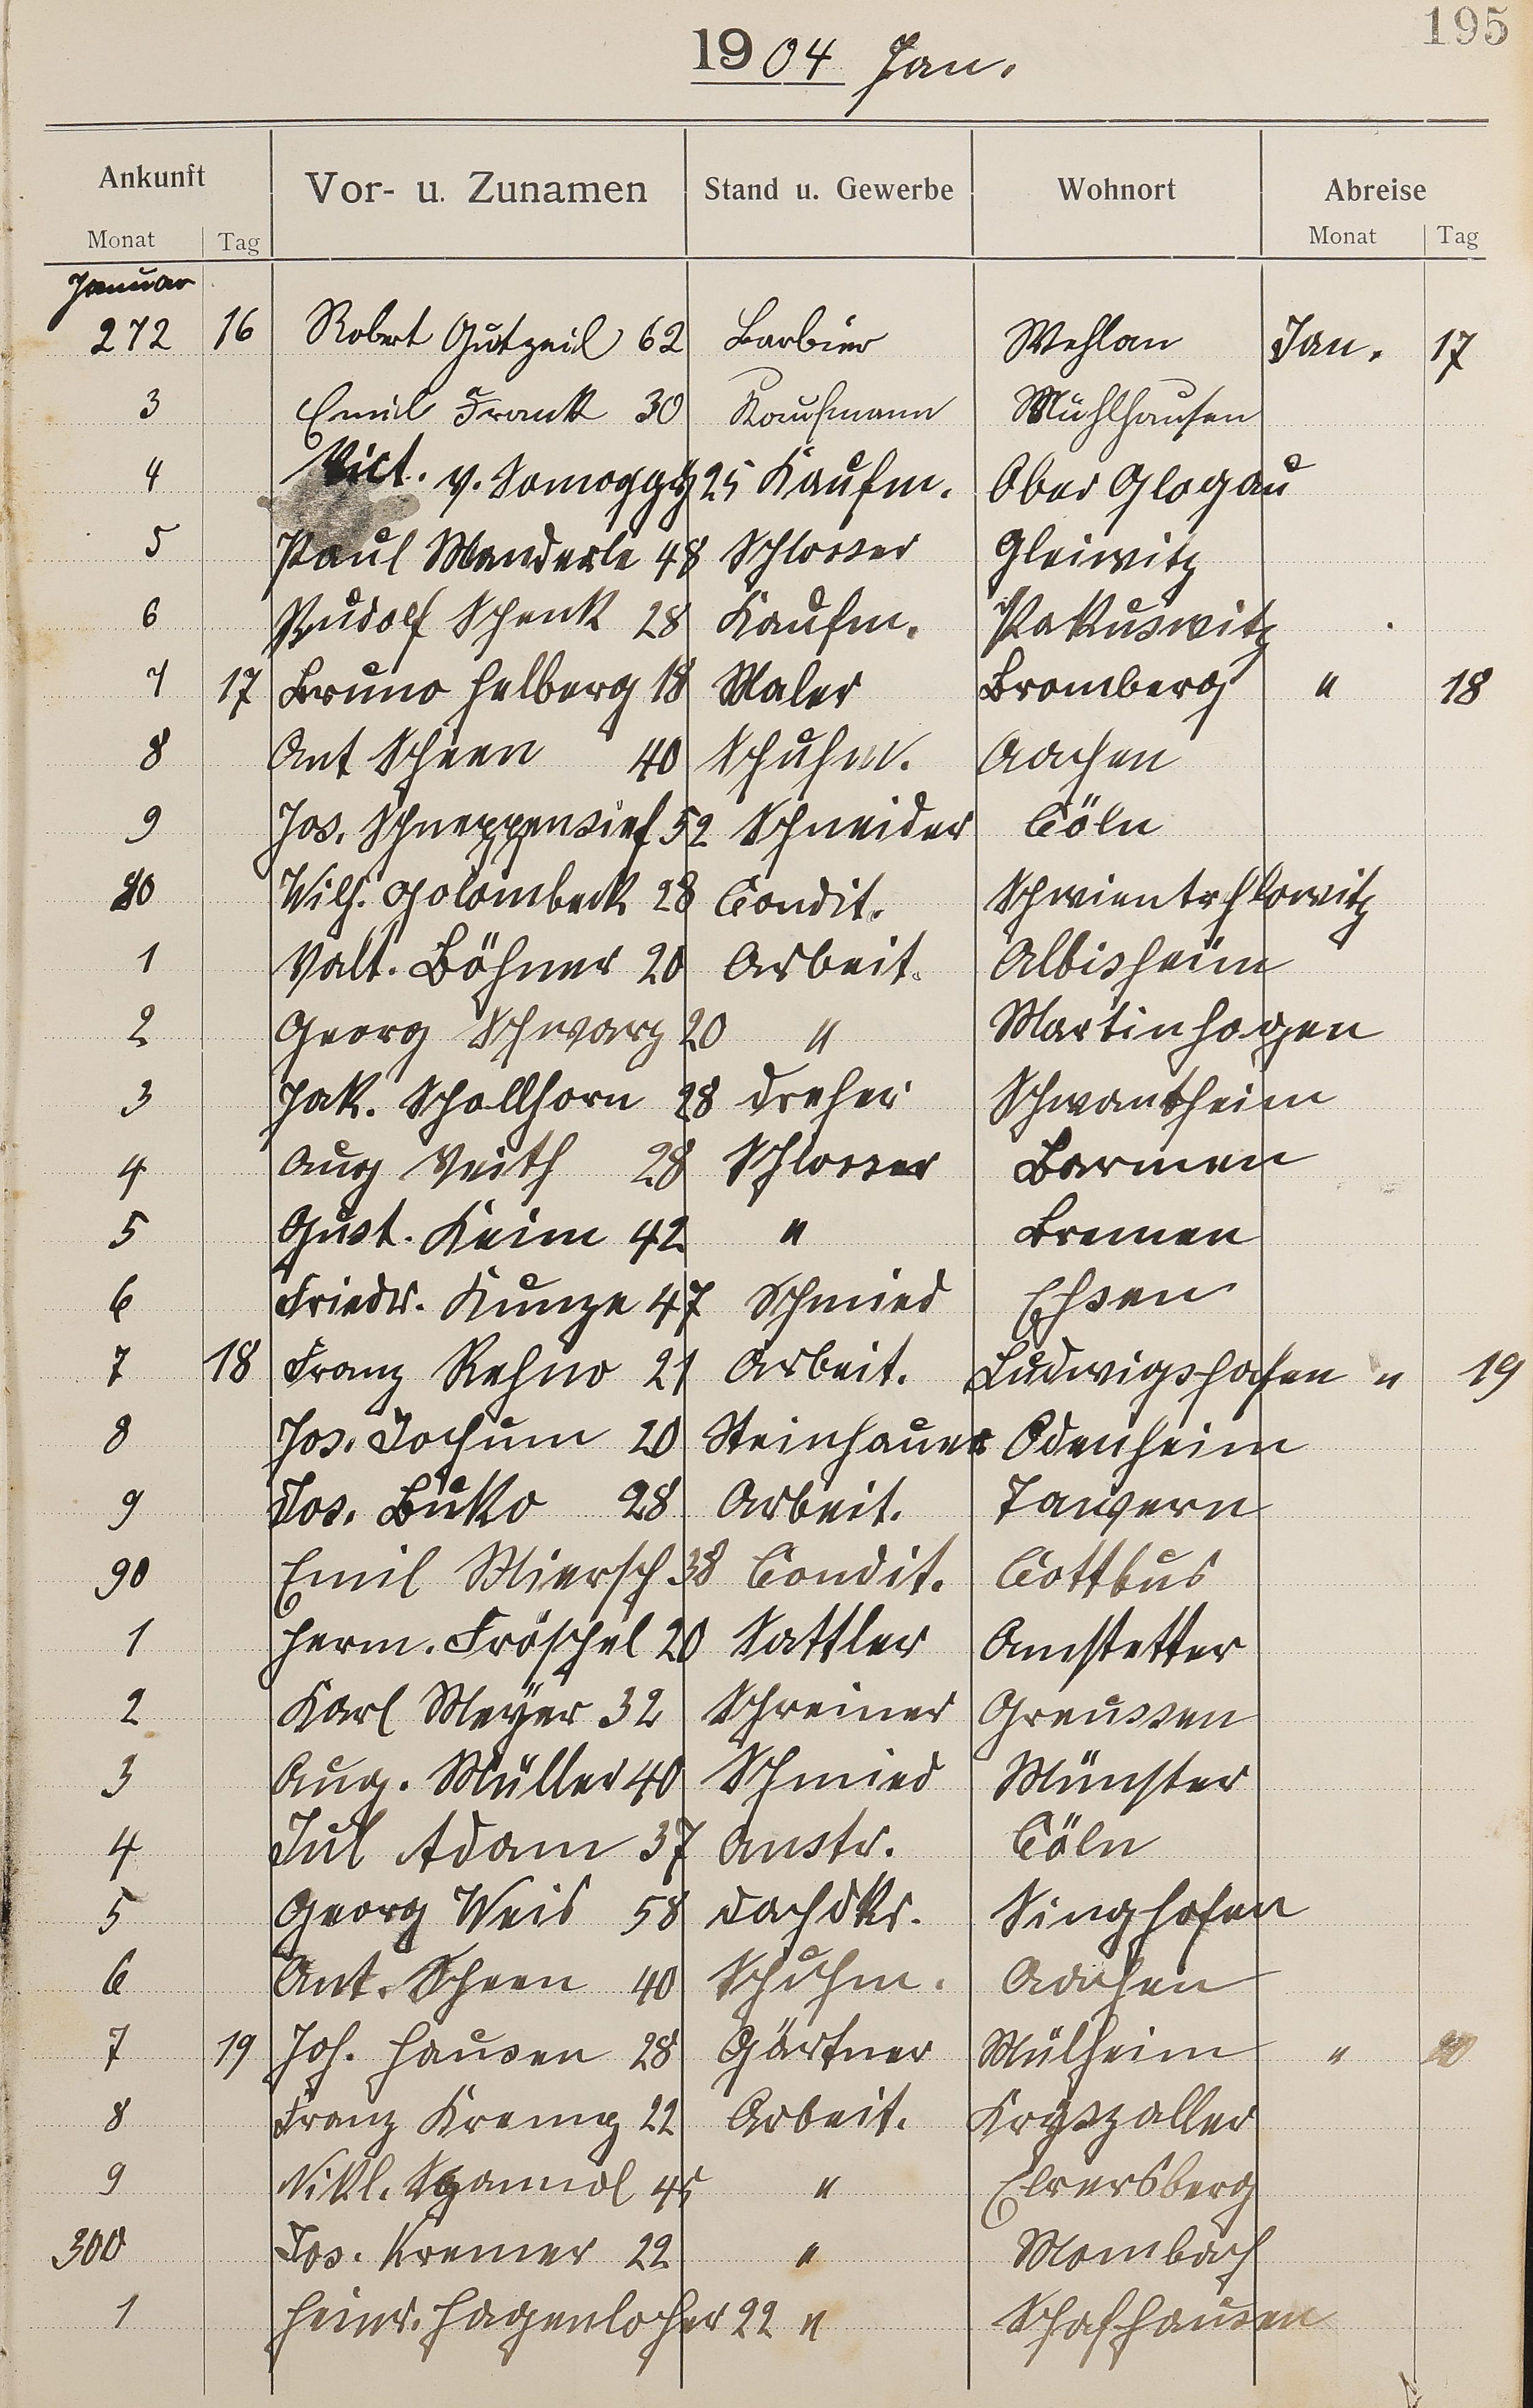 195
1904 Jan.
Ankunft Vor- u. Zunamen Stand u. Gewerbe Wohnort Abreise
Monat Tag Monat Tag
Januar
272 16 Robert Gutzeit 62 Barbier Wehlau Jan. 17
3 Emil Frank 30 Kaufmann Mühlhausen
4 Vict. v. Somoggy 25 Kaufm. Ober Glogau
5 Paul Manderle 48 Schlosser Gleiwitz
6 Rudolf Schenk 28 Kaufm. Pakuswitz
7 17 Bruno Helberg 18 Maler Bromberg " 18
8 Ant Scheen 40 Schuhm. Aachen
9 Jos. Schneppensief 52 Schneider Cöln
80 Wilh. Golombeck 28 Condit. Schwientochlowitz
1 Valt. Böhner 20 Arbeit. Albisheim
2 Georg Schwarz 20 " Martinhagen
3 Jak. Schallhorn 28 Dreher Schwantheim
4 Aug Veith 28 Schlosser Barmen
5 Gust. Keim 42 " Bremen
6 Friedr. Kunze 47 Schmied Essen
7 18 Franz Rehno 21 Arbeit. Ludwigshafen " 19
8 Jos. Jochum 20 Steinhauer Odenheim
9 Jos. Buko 28 Arbeit. Tawern
90 Emil Miersch 38 Condit. Cottbus
1 Herm. Fröschel 20 Sattler Amstetter
2 Karl Meÿer 32 Schreiner Greussen
3 Aug. Müller 40 Schmied Münster
4 Jul Adam 37 Anstr. Cöln
5 Georg Weis 58 Dachdkr. Singhofen
6 Ant. Scheen 40 Schuhm. Aachen
7 19 Joh. Hausen 28 Gärtner Mülheim " 20
8 Franz Kremp 22 Arbeit. Kryszaller
9 Nikl. 45 " Elversberg
300 Jos. Kremer 22 " Mombach
1 Heinr. Hagenlocher 22 " Schafhausen